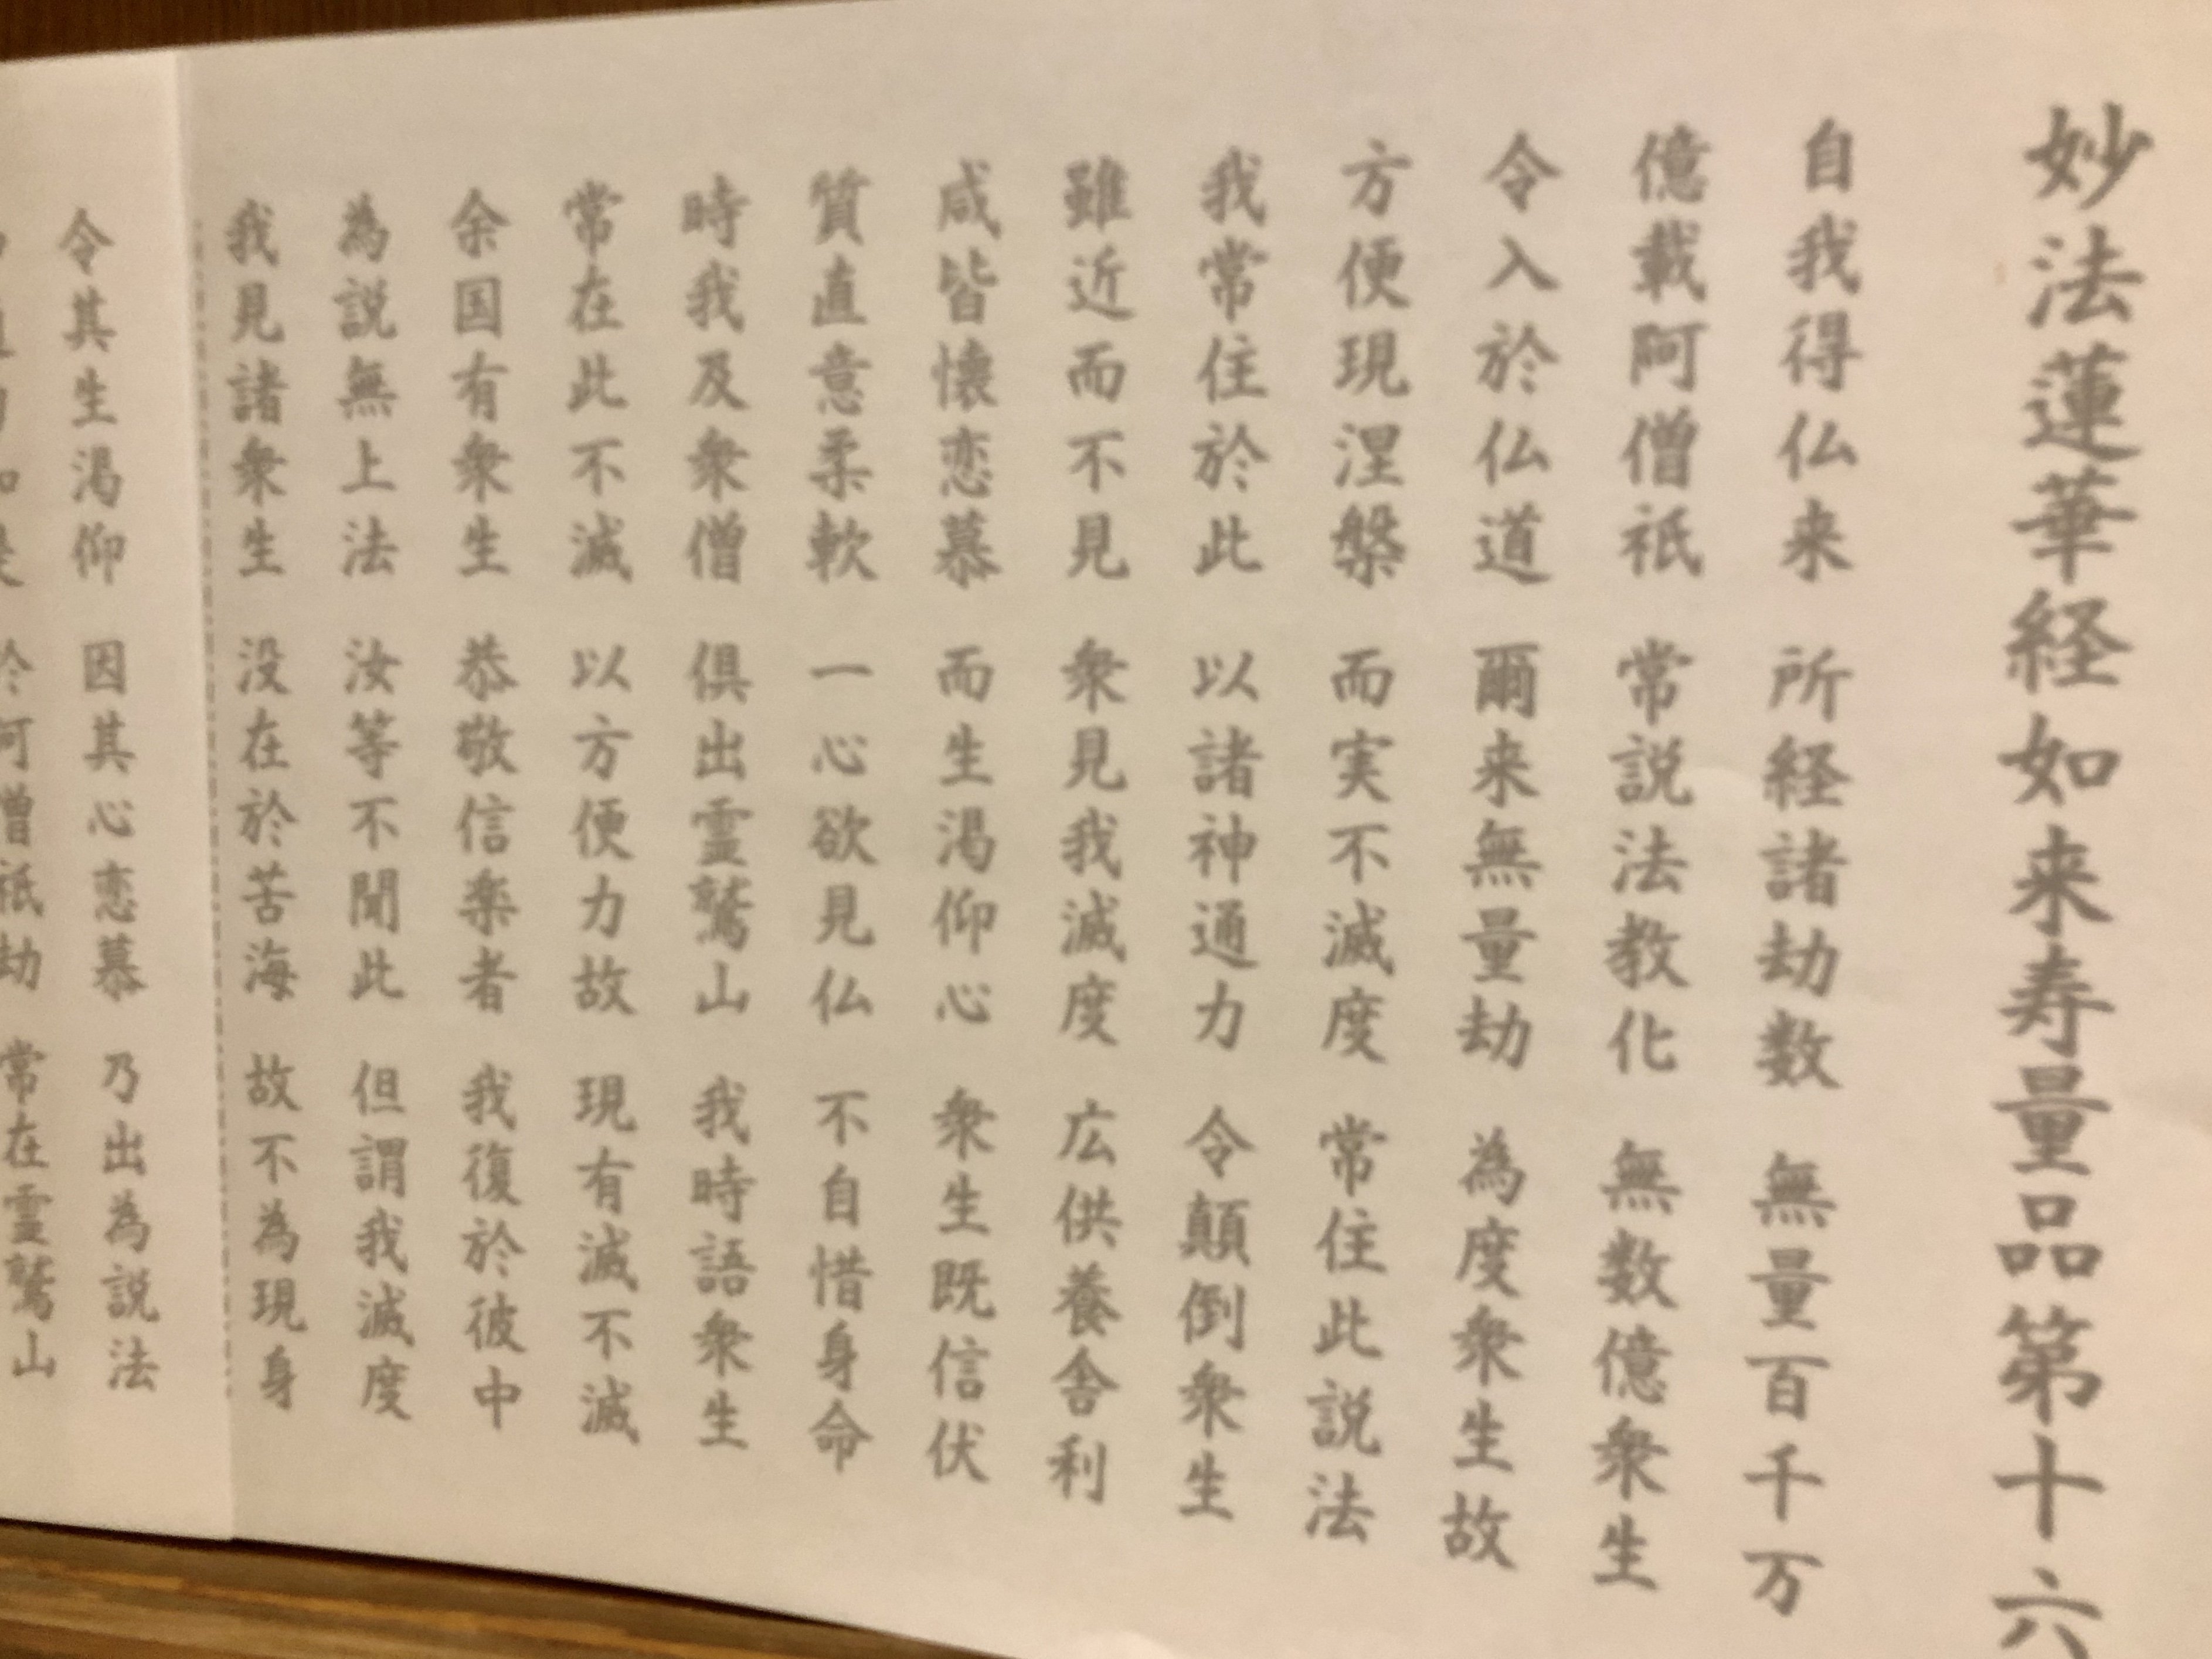 妙法蓮華経如来寿量品第十六
自我得仏来 所経諸劫数 無量百千万
億載阿僧祇 常説法教化 無数億衆生
令入於仏道 爾来無量劫 為度衆生故
方便現涅槃 而実不滅度 常住此説法
我常住於此 以諸神通力 令顛倒衆生
雖近而不見 衆見我滅度 広供養舎利
咸皆懐恋慕 而生渇仰心 衆生既信伏
質直意柔軟 一心欲見仏 不自惜身命
時我及衆僧 倶出霊鷲山 我時語衆生
常在此不滅 以方便力故 現有滅不滅
余国有衆生 恭敬信楽者 我復於彼中
為説無上法 汝等不聞此 但謂我滅度
我見諸衆生 没在於苦海 故不為現身
令其生渇仰 因其心恋慕 乃出為説法
於阿僧祇劫 常在霊鷲山